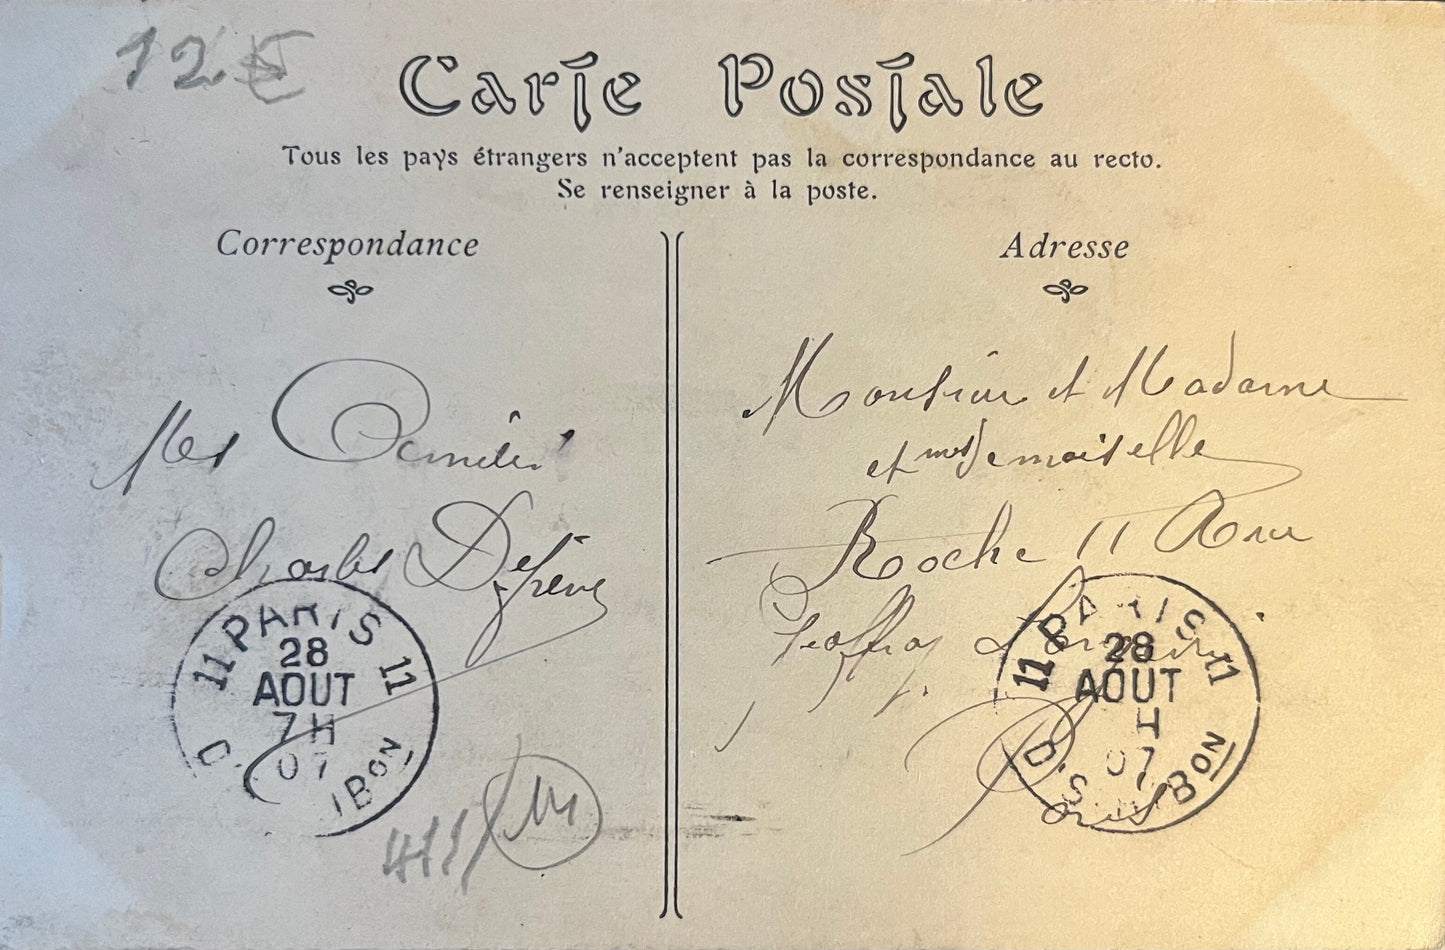 12€
Carte Postale
Tous les pays étrangers n'acceptent pas la correspondance au recto.
Se renseigner à la poste.
Correspondance
Mes
Charles
PARIS 11
28
AOUT
7H
07
Bon
Adresse
Monsieur et Madame
et mes demoiselle
Roche 11 Rue
Paris
11 PARIS 11
28
AOUT
H
07
Bon